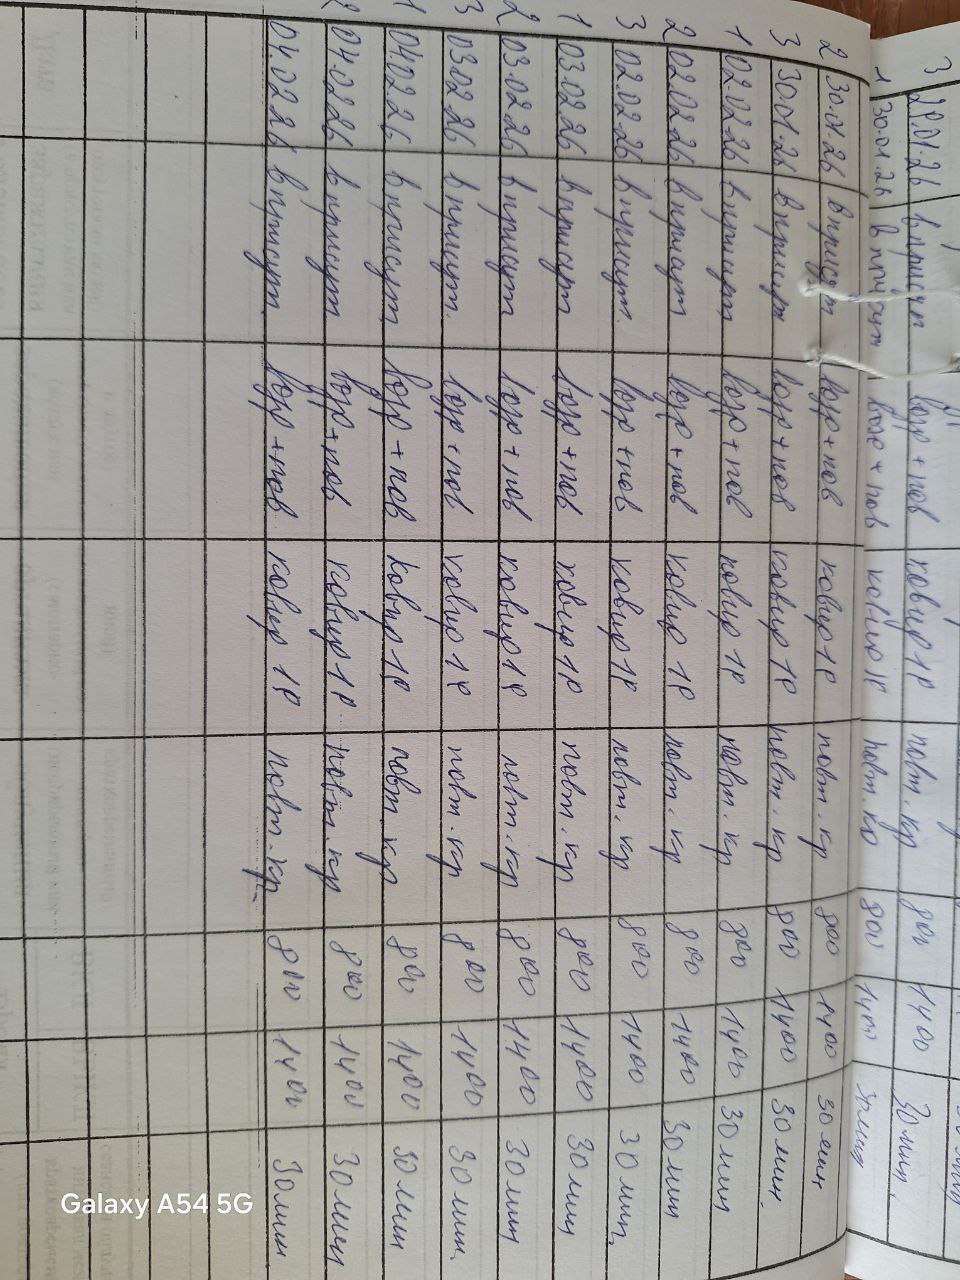 3 29.01.26 в присут возд + пов ковид 19 повт. кр 800 1400 30 мин
1 30.01.26 в присут возд + пов ковид 19 повт. кр 800 1400 30 мин
2 30.01.26 в присут возд + пов ковид 19 повт. кр 800 1400 30 мин
3 30.01.26 в присут возд + пов ковид 19 повт. кр 800 1400 30 мин.
1 02.02.26 в присут возд + пов ковид 19 повт. кр 800 1400 30 мин
2 02.02.26 в присут возд + пов ковид 19 повт. кр 800 1400 30 мин
3 02.02.26 в присут. возд + пов ковид 19 повт. кр 800 1400 30 мин.
1 03.02.26 в присут возд + пов ковид 19 повт. кр 800 1400 30 мин
2 03.02.26 в присут возд + пов ковид 19 повт. кр 800 1400 30 мин
3 03.02.26 в присут. возд + пов ковид 19 повт. кр 800 1400 30 мин.
1 04.02.26 в присут возд + пов ковид 19 повт кр 800 1400 30 мин
2 04.02.26 в присут возд + пов ковид 19 повт. кр 800 1400 30 мин
04.02.26 в присут. возд + пов ковид 19 повт. кр. 800 1400 30 мин
Galaxy A54 5G